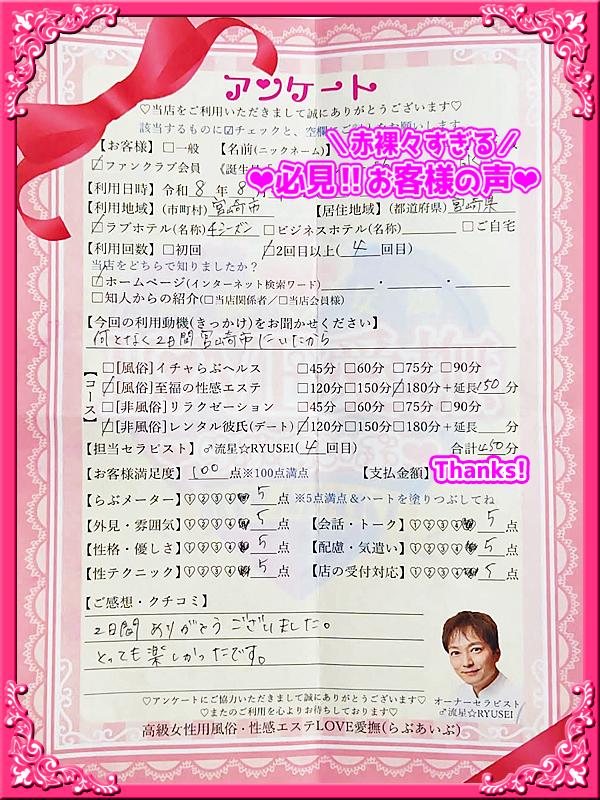 アンケート
♡当店をご利用いただきまして誠にありがとうございます♡
該当するものに☑チェックと、空欄
\赤裸々すぎる/
❤必見!!お客様の声❤
【お客様】□一般 【名前(ニックネーム)】
☑ファンクラブ会員 《誕生日
【利用日時】令和 8 年 8
【利用地域】(市町村) 宮崎市 【居住地域】(都道府県) 宮崎県
☑ラブホテル(名称) 4シーズン □ビジネスホテル(名称) □ご自宅
【利用回数】□初回 ☑2回目以上( 4 回目)
当店をどちらで知りましたか?
☑ホームページ(インターネット検索ワード) ・ ・
□知人からの紹介(□当店関係者/□当店会員様)
【今回の利用動機(きっかけ)をお聞かせください】
何となく2日間宮崎市にいたから
【コース】
□[風俗]イチャらぶヘルス □45分 □60分 □75分 □90分
☑[風俗]至福の性感エステ □120分 □150分 ☑180分+延長 150 分
□[非風俗]リラクゼーション □45分 □60分 □75分 □90分
☑[非風俗]レンタル彼氏(デート) ☑120分 □150分 □180分+延長 分
【担当セラピスト】♂流星☆RYUSEI( 4 回目) 合計 450 分
【お客様満足度】 100 点※100点満点 【支払金額】 Thanks!
【らぶメーター】①②③④♥ 5 点 ※5点満点&ハートを塗りつぶしてね
【外見・雰囲気】①②③④♥ 5 点 【会話・トーク】①②③④♥ 5 点
【性格・優しさ】①②③④♥ 5 点 【配慮・気遣い】①②③④♥ 5 点
【性テクニック】①②③④♥ 5 点 【店の受付対応】①②③④♥ 5 点
【ご感想・クチコミ】
2日間ありがとうございました。
とっても楽しかったです。
オーナーセラピスト
♂流星☆RYUSEI
♡アンケートにご協力いただきまして誠にありがとうございます♡
♡またのご利用を心よりお待ちしております♡
高級女性用風俗・性感エステLOVE愛撫(らぶあいぶ)